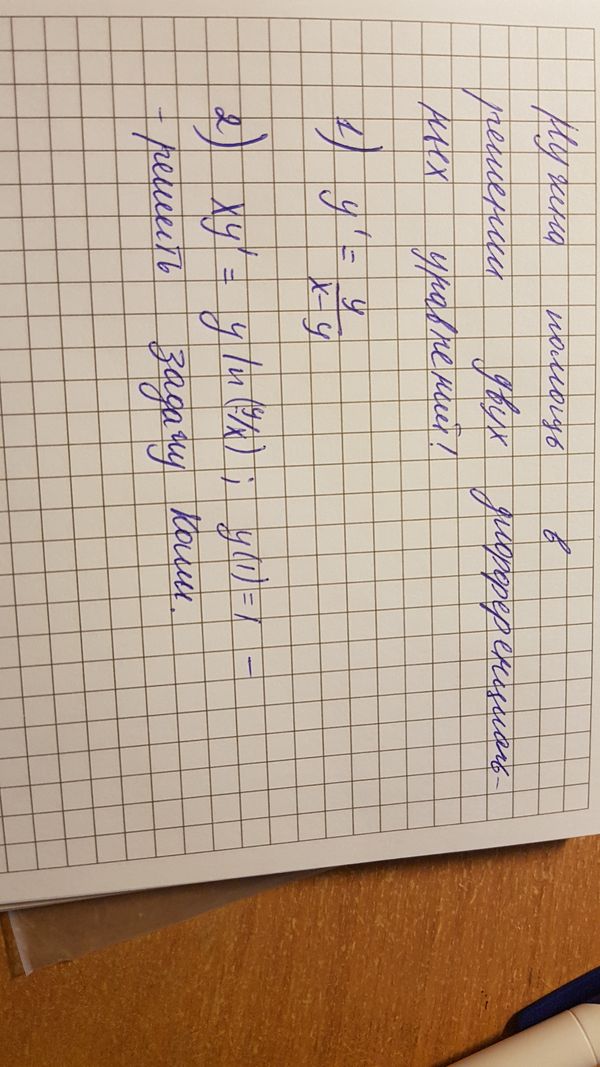 Нужна помощь в
решении двух дифференциаль-
ных уравнений!
1) y' = y/(x-y)
2) xy' = y ln(y/x); y(1)=1 -
- решить задачу Коши.